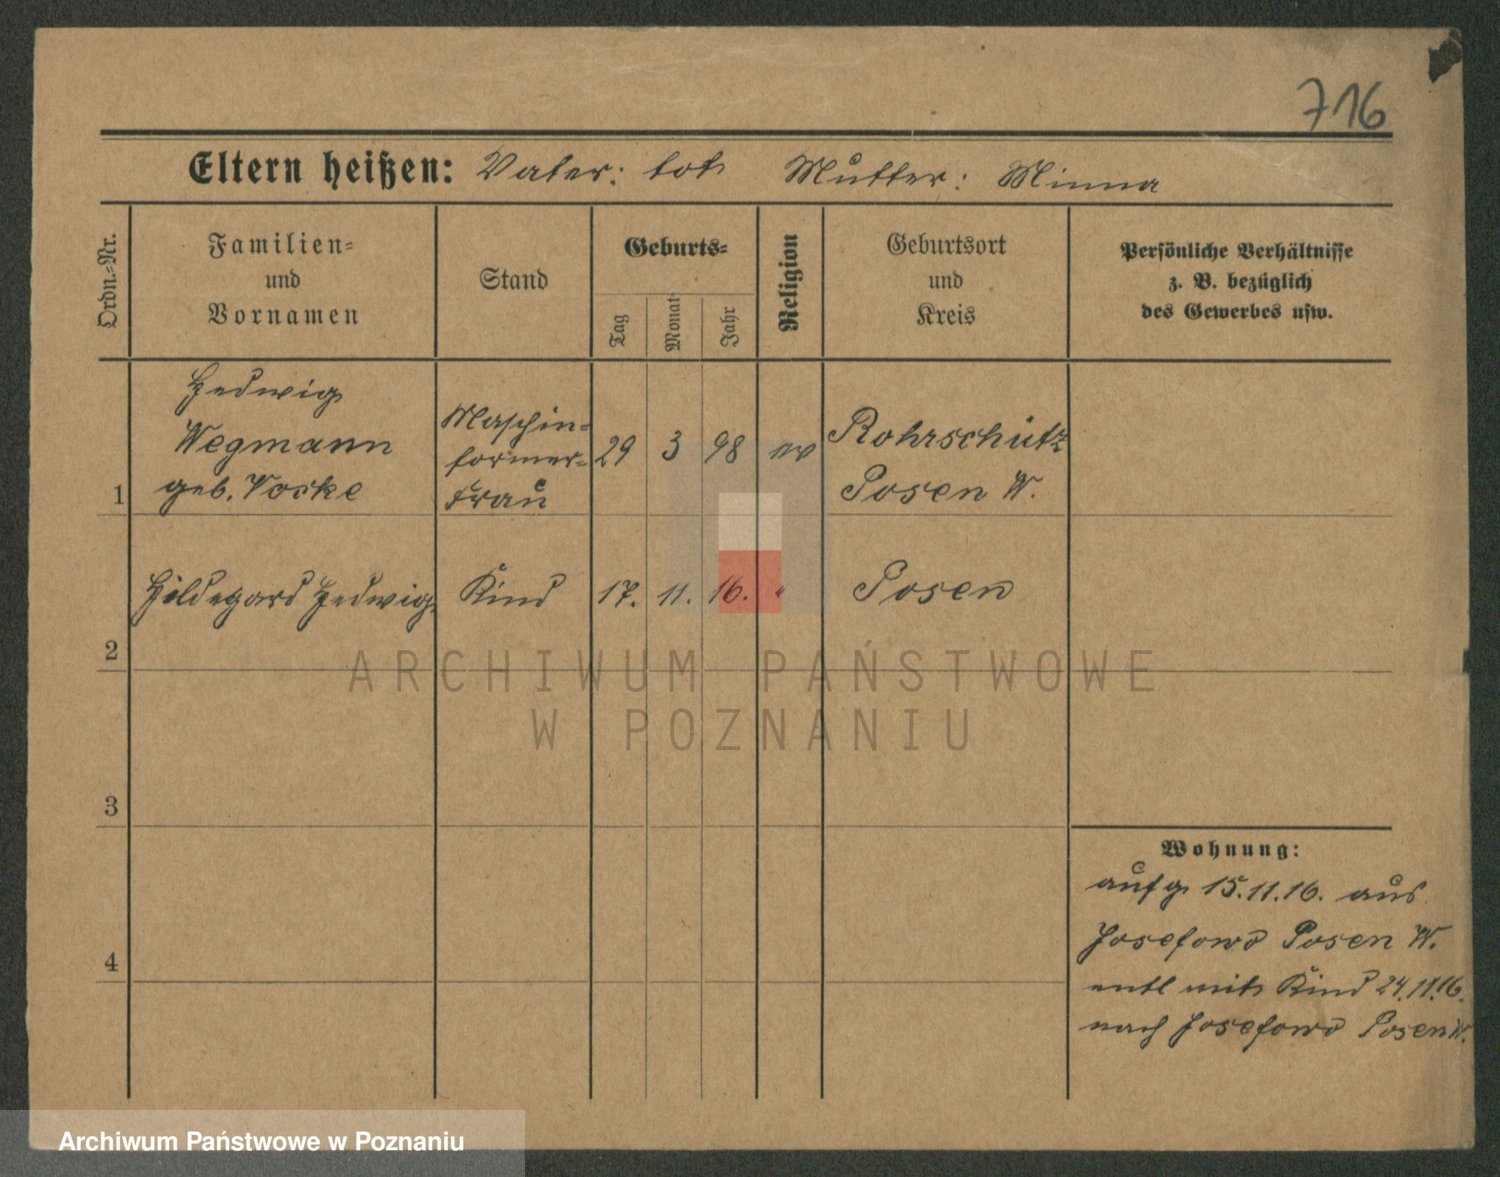 716
Eltern heißen: Vater: tot Mutter: Minna
Ordn.-Nr.
Familien-
und
Vornamen
Stand
Geburts-
Tag
Monat
Jahr
Religion
Geburtsort
und
Kreis
Persönliche Verhältnisse
z. B. bezüglich
des Gewerbes usw.
1
Hedwig
Wegmann
geb. Vocke
Maschin-
former-
frau
29 3 98 ev
Rohrschütz
Posen W.
2
Hildegard Hedwig
Kind
17. 11. 16. "
Posen
3
4
Wohnung:
aufg 15.11.16. aus
Josefowo Posen W.
entl mit Kind 24.11.16.
nach Josefowo Posen W.
ARCHIWUM PAŃSTWOWE
W POZNANIU
Archiwum Państwowe w Poznaniu